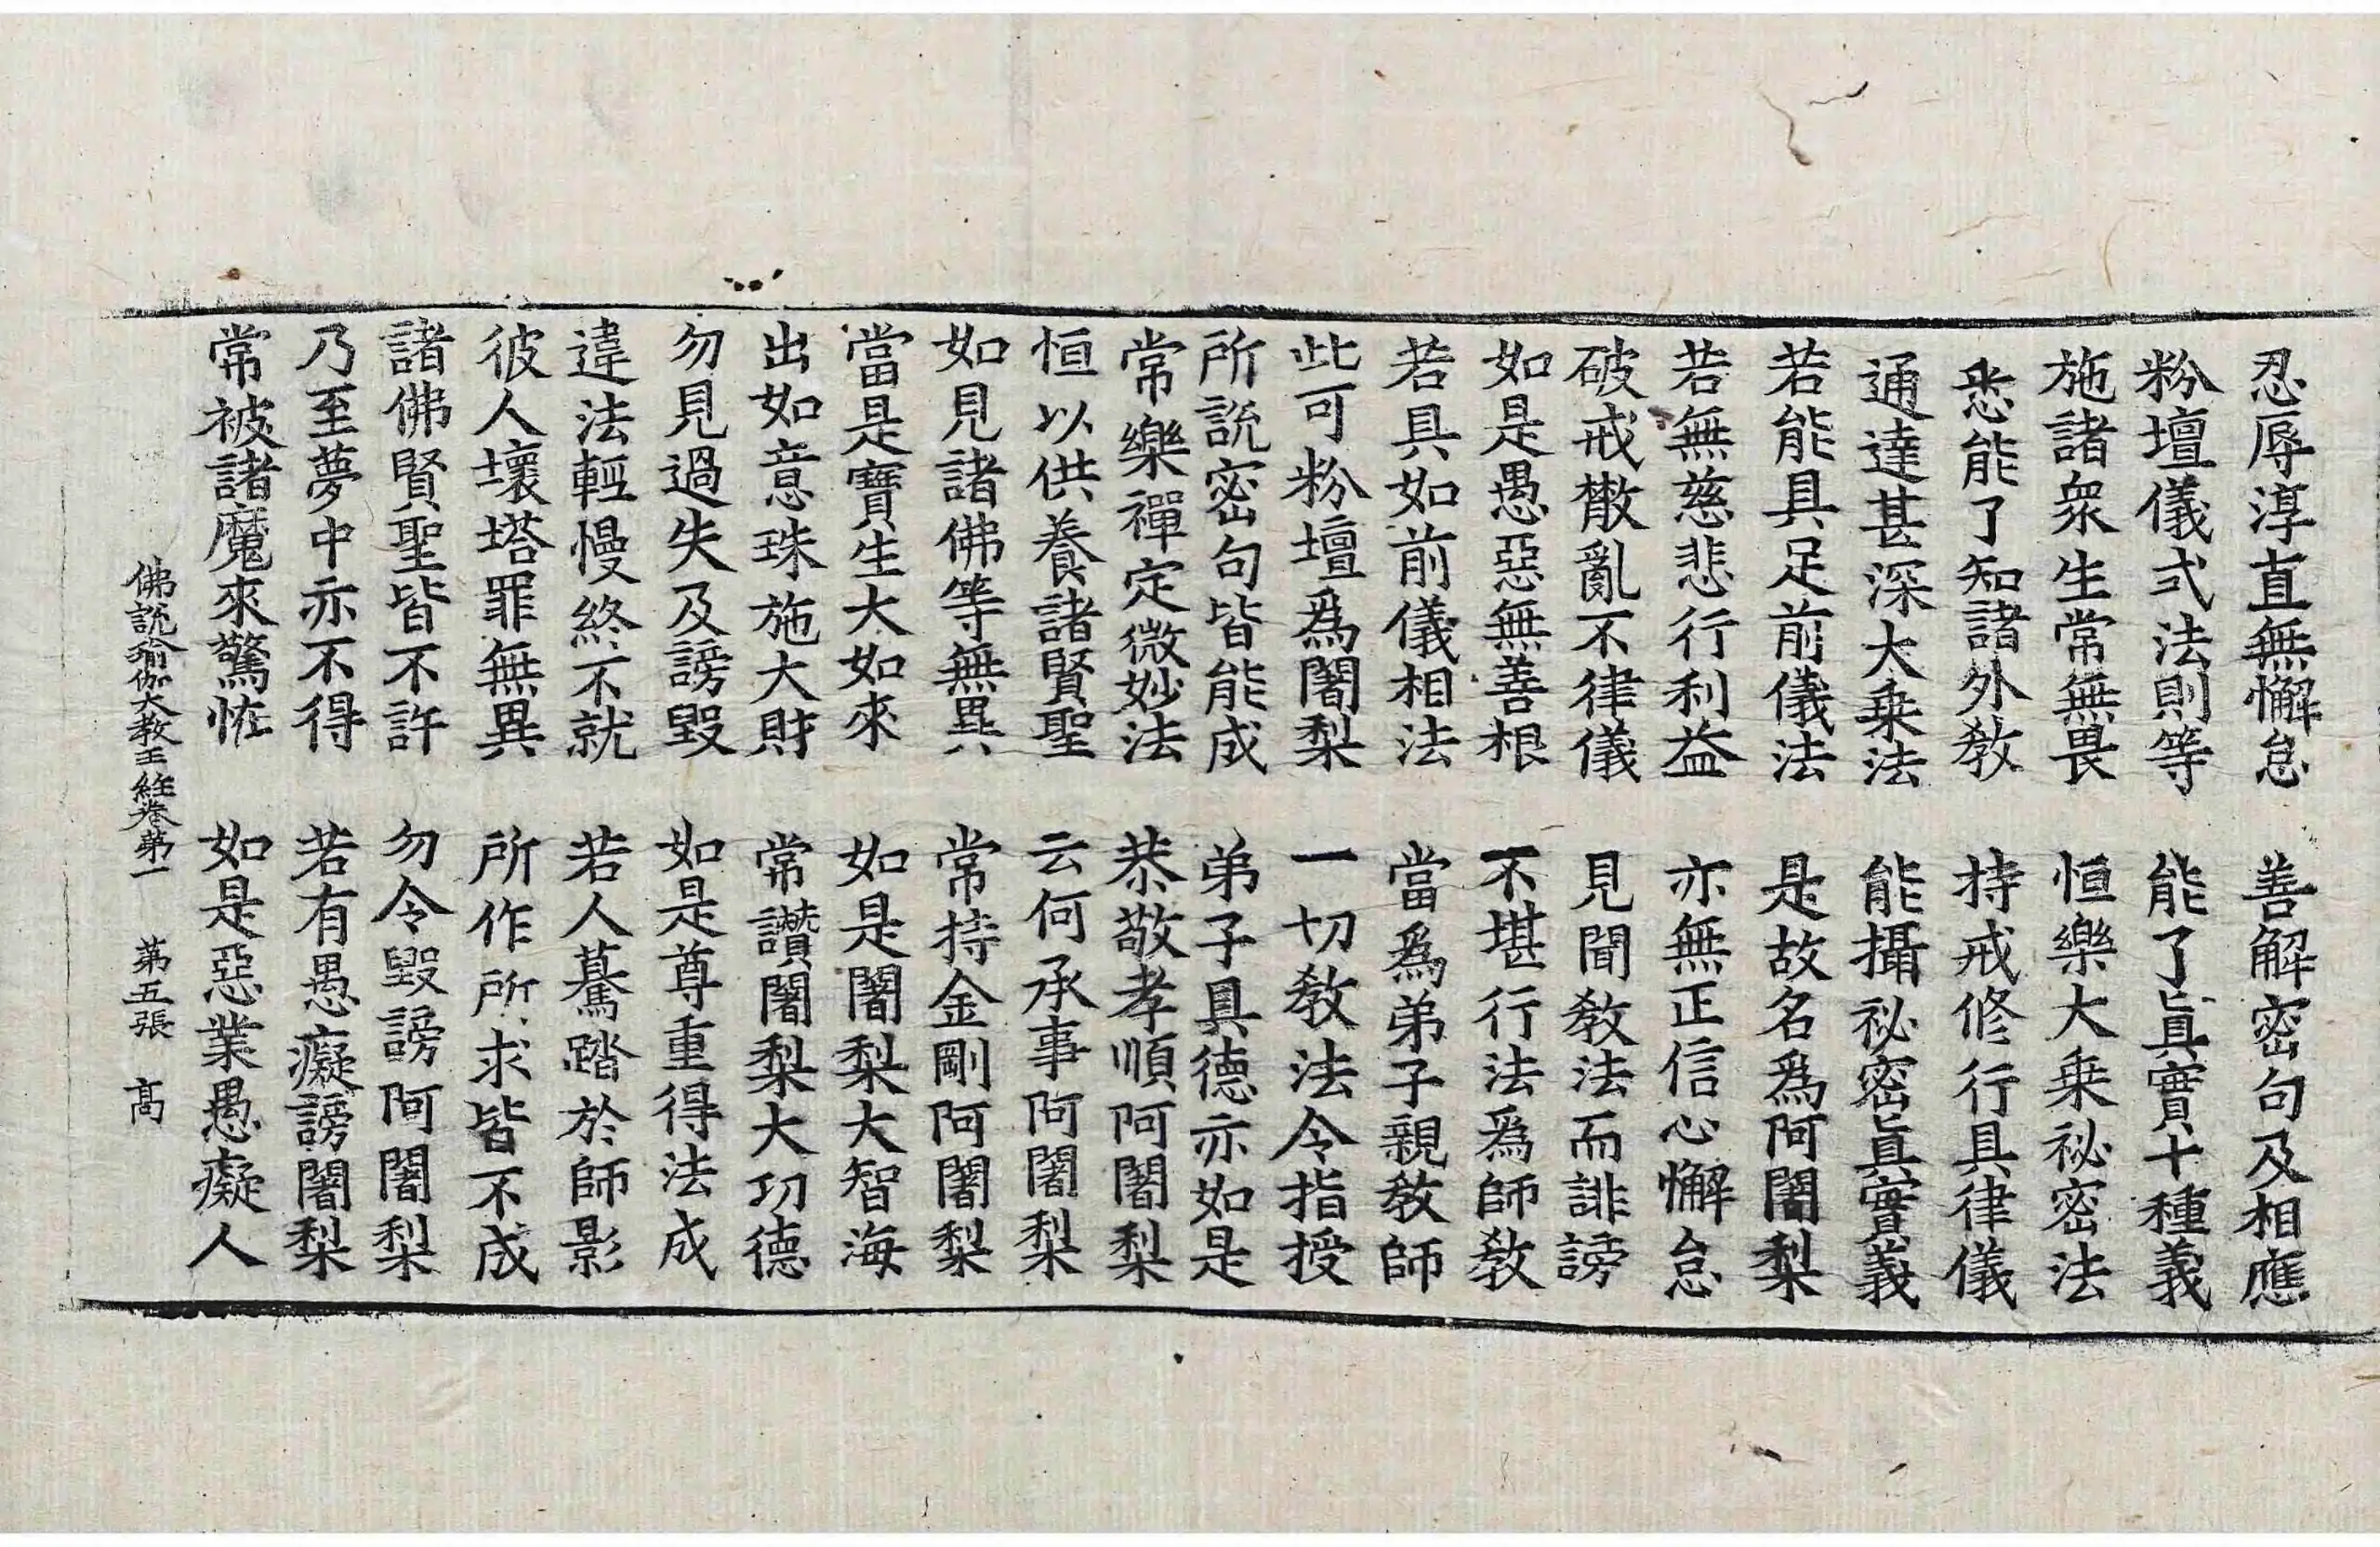 忍辱淳直無懈怠　善解密句及相應
粉壇儀式法則等　能了眞實十種義
施諸衆生常無畏　恒樂大乗祕密法
悉能了知諸外教　持戒修行具律儀
通達甚深大乗法　能攝祕密眞實義
若能具足前儀法　是故名爲阿闍梨
若無慈悲行利益　亦無正信心懈怠
破戒散亂不律儀　見聞教法而誹謗
如是愚惡無善根　不堪行法爲師教
若具如前儀相法　當爲弟子親教師
此可粉壇爲闍梨　一切教法令指授
所說密句皆能成　弟子具德亦如是
常樂禪定微妙法　恭敬孝順阿闍梨
恒以供養諸賢聖　云何承事阿闍梨
如見諸佛等無異　常持金剛阿闍梨
當是寶生大如來　如是闍梨大智海
出如意珠施大財　常讚闍梨大功德
勿見過失及謗毀　如是尊重得法成
違法輕慢終不就　若人驀踏於師影
彼人壞塔罪無異　所作所求皆不成
諸佛賢聖皆不許　勿令毀謗阿闍梨
乃至夢中亦不得　若有愚癡謗闍梨
常被諸魔來驚恠　如是惡業愚癡人
佛說瑜伽大教王經卷第一　第五張　髙